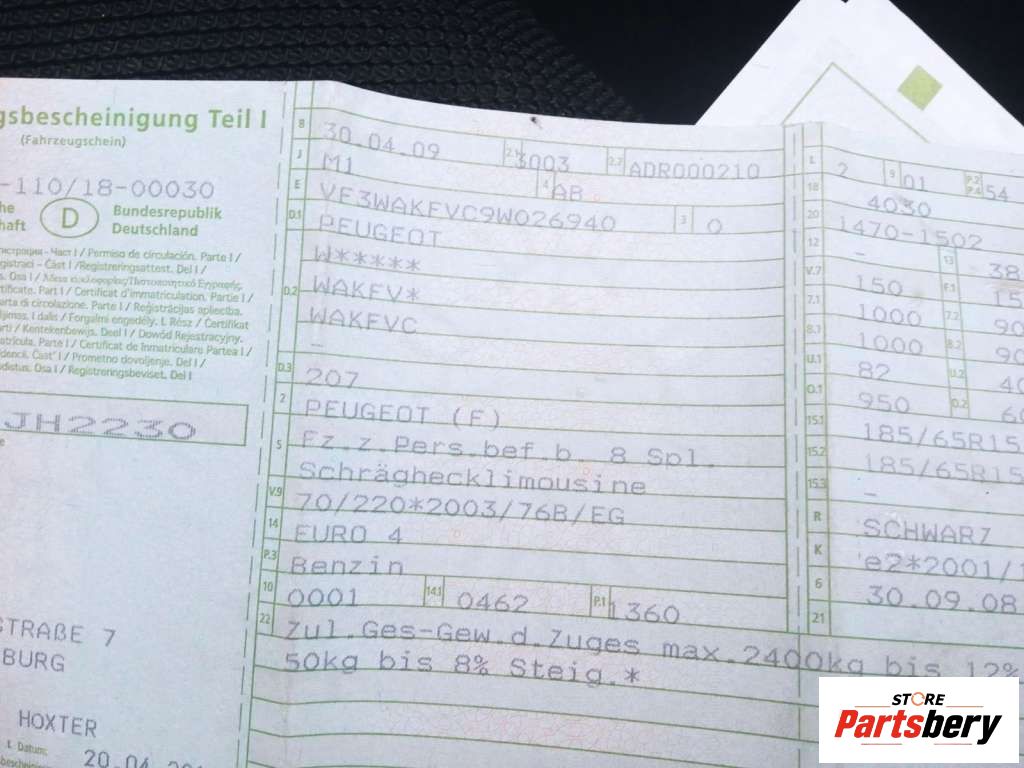 gsbescheinigung Teil I
(Fahrzeugschein)
-110/18-00030
D
Bundesrepublik
Deutschland
haft
Част I / Permiso de circulación. Parte I /
Část I / Registreringsattest. Del I /
Osa I / Άδεια κυκλοφορίας/Πιστοποιητικό Εγγραφής.
Part I / Certificat d'immatriculation. Partie I /
arta di circolazione. Parte I / Reģistrācijas apliecība.
I dalis / Forgalmi engedély. I. Rész / Ċertifikat
Kentekenbewijs. Deel I / Dowód Rejestracyjny.
Parte I / Certificat de Inmatriculare Partea I /
Časť I / Prometno dovoljenje. Del I /
Osa I / Registreringsbeviset. Del I
JH2230
STRAßE 7
BURG
HOXTER
I. Datum:
20.04.20
B 30.04.09 2.1 3003 2.2 ADR000210
J M1 4 AB
E VF3WAKFVC9W026940 3 0
D.1 PEUGEOT
W*****
D.2 WAKFV*
WAKFVC
–
D.3 207
2 PEUGEOT (F)
5 Fz.z.Pers.bef.b. 8 Spl.
Schräghecklimousine
V.9 70/220*2003/76B/EG
14 EURO 4
P.3 Benzin
10 0001 14.1 0462 P.1 1360
22 Zul.Ges-Gew.d.Zuges max.2400kg bis 12%
50kg bis 8% Steig.*
L 2 9 01 P.2 P.4 54
18 4030
20 1470-1502
12 – 13 38
V.7 150 F.1 15
7.1 1000 7.2 90
8.1 1000 8.2 90
U.1 82 U.2 40
O.1 950 O.2 60
15.1 185/65R15
15.2 185/65R15
15.3 –
R SCHWARZ
K e2*2001/1
6 30.09.08
21
STORE
Partsbery